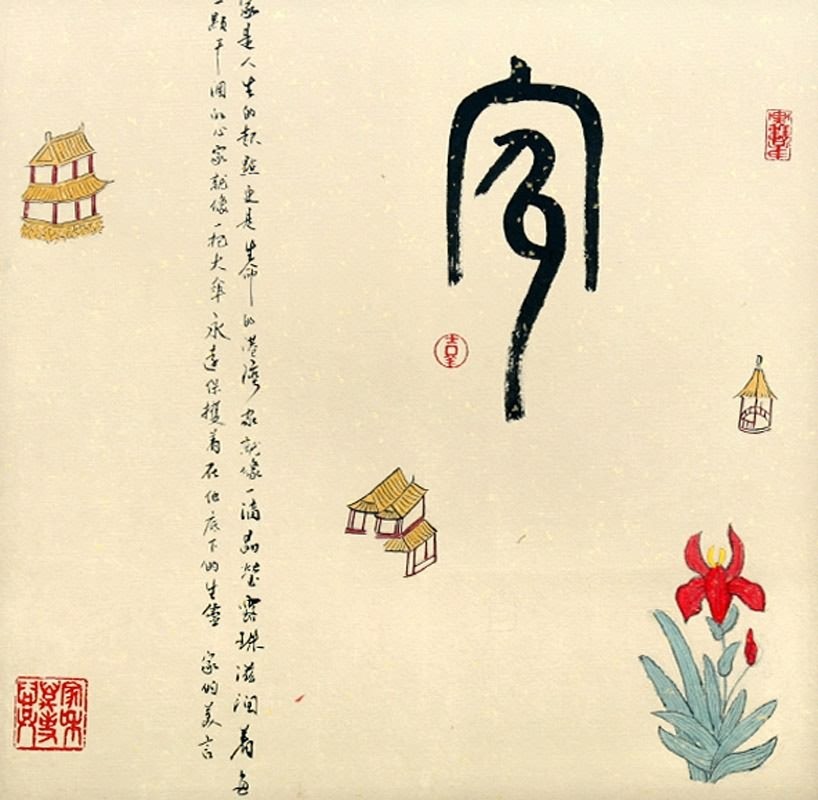 家
家是人生的起點更是生命的港灣家就像一滴晶瑩露珠滋潤着每
一顆干涸的心家就像一把大傘永遠保護着在他底下的生靈 家的美言
家和萬事興